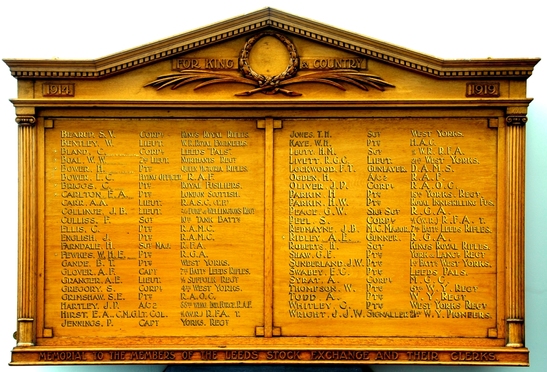 FOR KING & COUNTRY
1914 1919
BEARUP, S.V. CORPL KING'S ROYAL RIFLES.
BENTLEY, W. LIEUT W.R. ROYAL PIONEERS.
BLAND, C. CORPL LEEDS PALS.
BOAL, W.W. 2ND LIEUT
BOWER, H. PTE RIFLES.
BOWER, E.C. OFFICER R.A.F.
BRIGGS, C. PTE ROYAL FUSILIERS.
CARLTON, E.A. PTE LONDON SCOTTISH.
CARR, A.A. LIEUT R.A.S.C.
COLLINGE, J.B. LIEUT
CULLISS, F. SGT 10TH TANK BATTN
ELLIS, C. PTE R.A.M.C.
ENGLISH, J. PTE R.A.M.C.
FARNDALE, H. SGT MAJ. R.F.A.
FEWKES, W.H.E. PTE R.G.A.
GANDE, B. PTE WEST YORKS.
GLOVER, A.F. CAPT 7TH BATTN LEEDS RIFLES.
GRANGER, A.E. LIEUT SUFFOLK REGT
GREGORY, S. CORPL 4TH WEST YORKS.
GRIMSHAW, S.E. PTE R.A.O.C.
HARTLEY, J.P. AC2
HIRST, E.A., C.M.G. LT. COL. R.F.A. T.
JENNINGS, P. CAPT YORKS. REGT
JONES, T.H. SGT WEST YORKS.
KAYE, W.H. PTE H.A.C.
LIGHT, H.M. SGT W.R. R.F.A.
LIVETT, R.G.C. LIEUT WEST YORKS.
LOCKWOOD, F.T. GUNLAYER D.A.M.S.
OGDEN, H. R.A.F.
OLIVER, J.D. CORPL R.A.O.C.
PARKIN, H. PTE YORKS. REGT
PARKIN, H.W. PTE ROYAL INNISKILLING FUS.
PEACE, G.W. SIG. SGT R.G.A.
PEEL, S. CORPL R.F.A. T.
REDMAYNE, J.B. M.C. MAJOR 7TH BATT LEEDS RIFLES.
RIDLEY, A.E. GUNNER R.G.A.
ROBERTS, H. SGT KINGS ROYAL RIFLES.
SHAW, G.E. PTE YORK AND LANCR REGT
SUNDERLAND, J.W. PTE BATT WEST YORKS.
SWABEY, E.C. PTE LEEDS PALS.
SYRAT, A. CORPL M.G.C.
THOMPSON, W. PTE W.Y. REGT
TODD, A. PTE W.Y. REGT
WHITLEY, C. PTE WEST YORKS REGT
WRIGHT, J.J.W. SIGNALLER W.Y. PIONEERS.
MEMORIAL TO THE MEMBERS OF THE LEEDS STOCK EXCHANGE AND THEIR CLERKS.